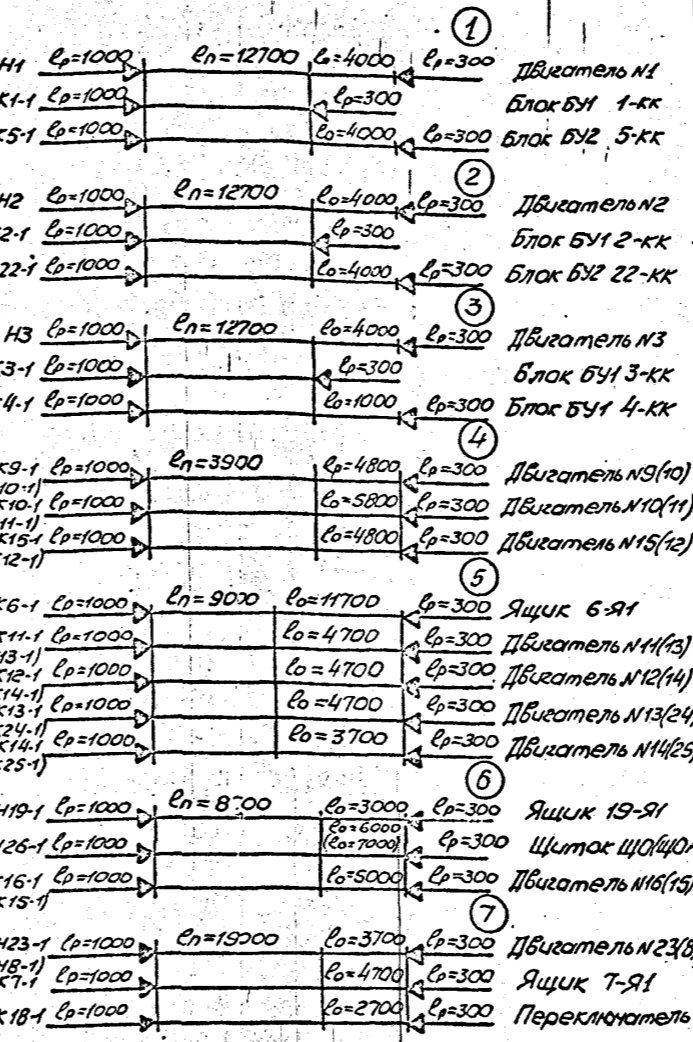 ①
Н1 ℓр=1000 ℓп=12700 ℓо=4000 ℓр=300 Двигатель N1
К1-1 ℓр=1000 ℓр=300 Блок БУ1 1-КК
К5-1 ℓр=1000 ℓо=4000 ℓр=300 Блок БУ2 5-КК
②
Н2 ℓр=1000 ℓп=12700 ℓо=4000 ℓр=300 Двигатель N2
2-1 ℓр=1000 ℓр=300 Блок БУ1 2-КК
22-1 ℓр=1000 ℓо=4000 ℓр=300 Блок БУ2 22-КК
③
Н3 ℓр=1000 ℓп=12700 ℓо=4000 ℓр=300 Двигатель N3
К3-1 ℓр=1000 ℓр=300 Блок БУ1 3-КК
4-1 ℓр=1000 ℓо=1000 ℓр=300 Блок БУ1 4-КК
④
К9-1 ℓр=1000 ℓп=3900 ℓр=4800 ℓр=300 Двигатель N9(10)
10-1)
К10-1 ℓр=1000 ℓо=5800 ℓр=300 Двигатель N10(11)
11-1)
К15-1 ℓр=1000 ℓо=4800 ℓр=300 Двигатель N15(12)
12-1)
⑤
К6-1 ℓр=1000 ℓп=9000 ℓо=11700 ℓр=300 Ящик 6-Я1
К11-1 ℓр=1000 ℓо=4700 ℓр=300 Двигатель N11(13)
13-1)
К12-1 ℓр=1000 ℓо=4700 ℓр=300 Двигатель N12(14)
К14-1)
К13-1 ℓр=1000 ℓо=4700 ℓр=300 Двигатель N13(24)
К24-1)
К14-1 ℓр=1000 ℓо=3700 ℓр=300 Двигатель N14(25)
К25-1)
⑥
Н19-1 ℓр=1000 ℓо=3000 ℓр=300 Ящик 19-Я1
ℓо=6000
26-1 ℓр=1000 (ℓо=7000) ℓр=300 Щиток ЩО(ЩОА
16-1 ℓр=1000 ℓо=5000 ℓр=300 Двигатель N16(15)
К15-1)
⑦
Н23-1 ℓр=1000 ℓо=3700 ℓр=300 Двигатель N23(8
Н8-1)
К7-1 ℓр=1000 ℓо=4700 ℓр=300 Ящик 7-Я1
К18-1 ℓр=1000 ℓо=2700 ℓр=300 Переключатель